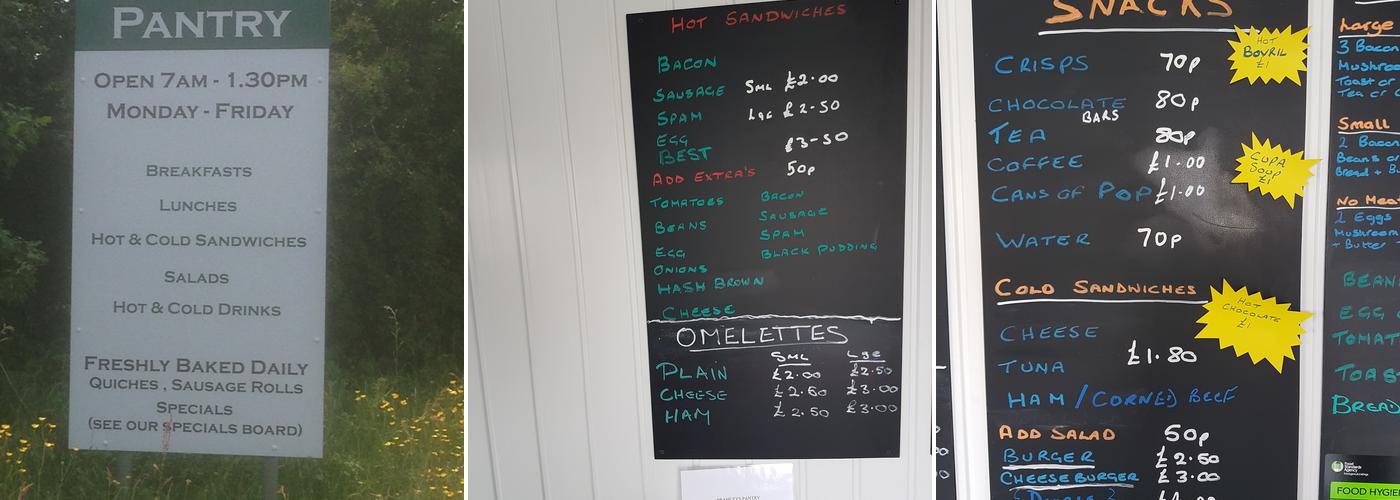 PANTRY
OPEN 7AM - 1.30PM
MONDAY - FRIDAY
BREAKFASTS
LUNCHES
HOT & COLD SANDWICHES
SALADS
HOT & COLD DRINKS
FRESHLY BAKED DAILY
QUICHES , SAUSAGE ROLLS
SPECIALS
(SEE OUR SPECIALS BOARD)
HOT SANDWICHES
BACON
SAUSAGE SML £2.00
SPAM LGE £2-50
EGG
BEST £3-50
ADD EXTRA'S 50p
TOMATOES BACON
BEANS SAUSAGE
EGG SPAM
ONIONS BLACK PUDDING
HASH BROWN
CHEESE
OMELETTES
SML LGE
PLAIN £2.00 £2.50
CHEESE £2.50 £3.00
HAM £2.50 £3.00
SNACKS
CRISPS 70p
CHOCOLATE BARS 80p
TEA 80p
COFFEE £1.00
CANS OF POP £1.00
WATER 70p
HOT
BOVRIL
£1
CUPA
SOUP
£1
COLD SANDWICHES
HOT
CHOCOLATE
£1
CHEESE
TUNA £1.80
HAM / CORNED BEEF
ADD SALAD 50p
BURGER £2.50
CHEESEBURGER £3.00
Large
3 Bacon
Toast or
Tea or
Small
2 Bacon
Beans or
Bread +
2 Eggs
+ Butter
BEANS
EGG
Food
Standards
Agency